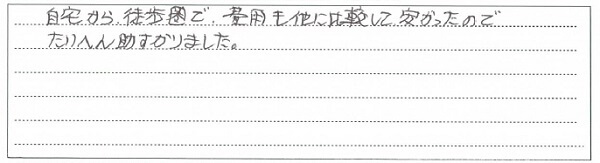 自宅から徒歩圏で、費用も他に比較して安かったので
たいへん助すかりました。